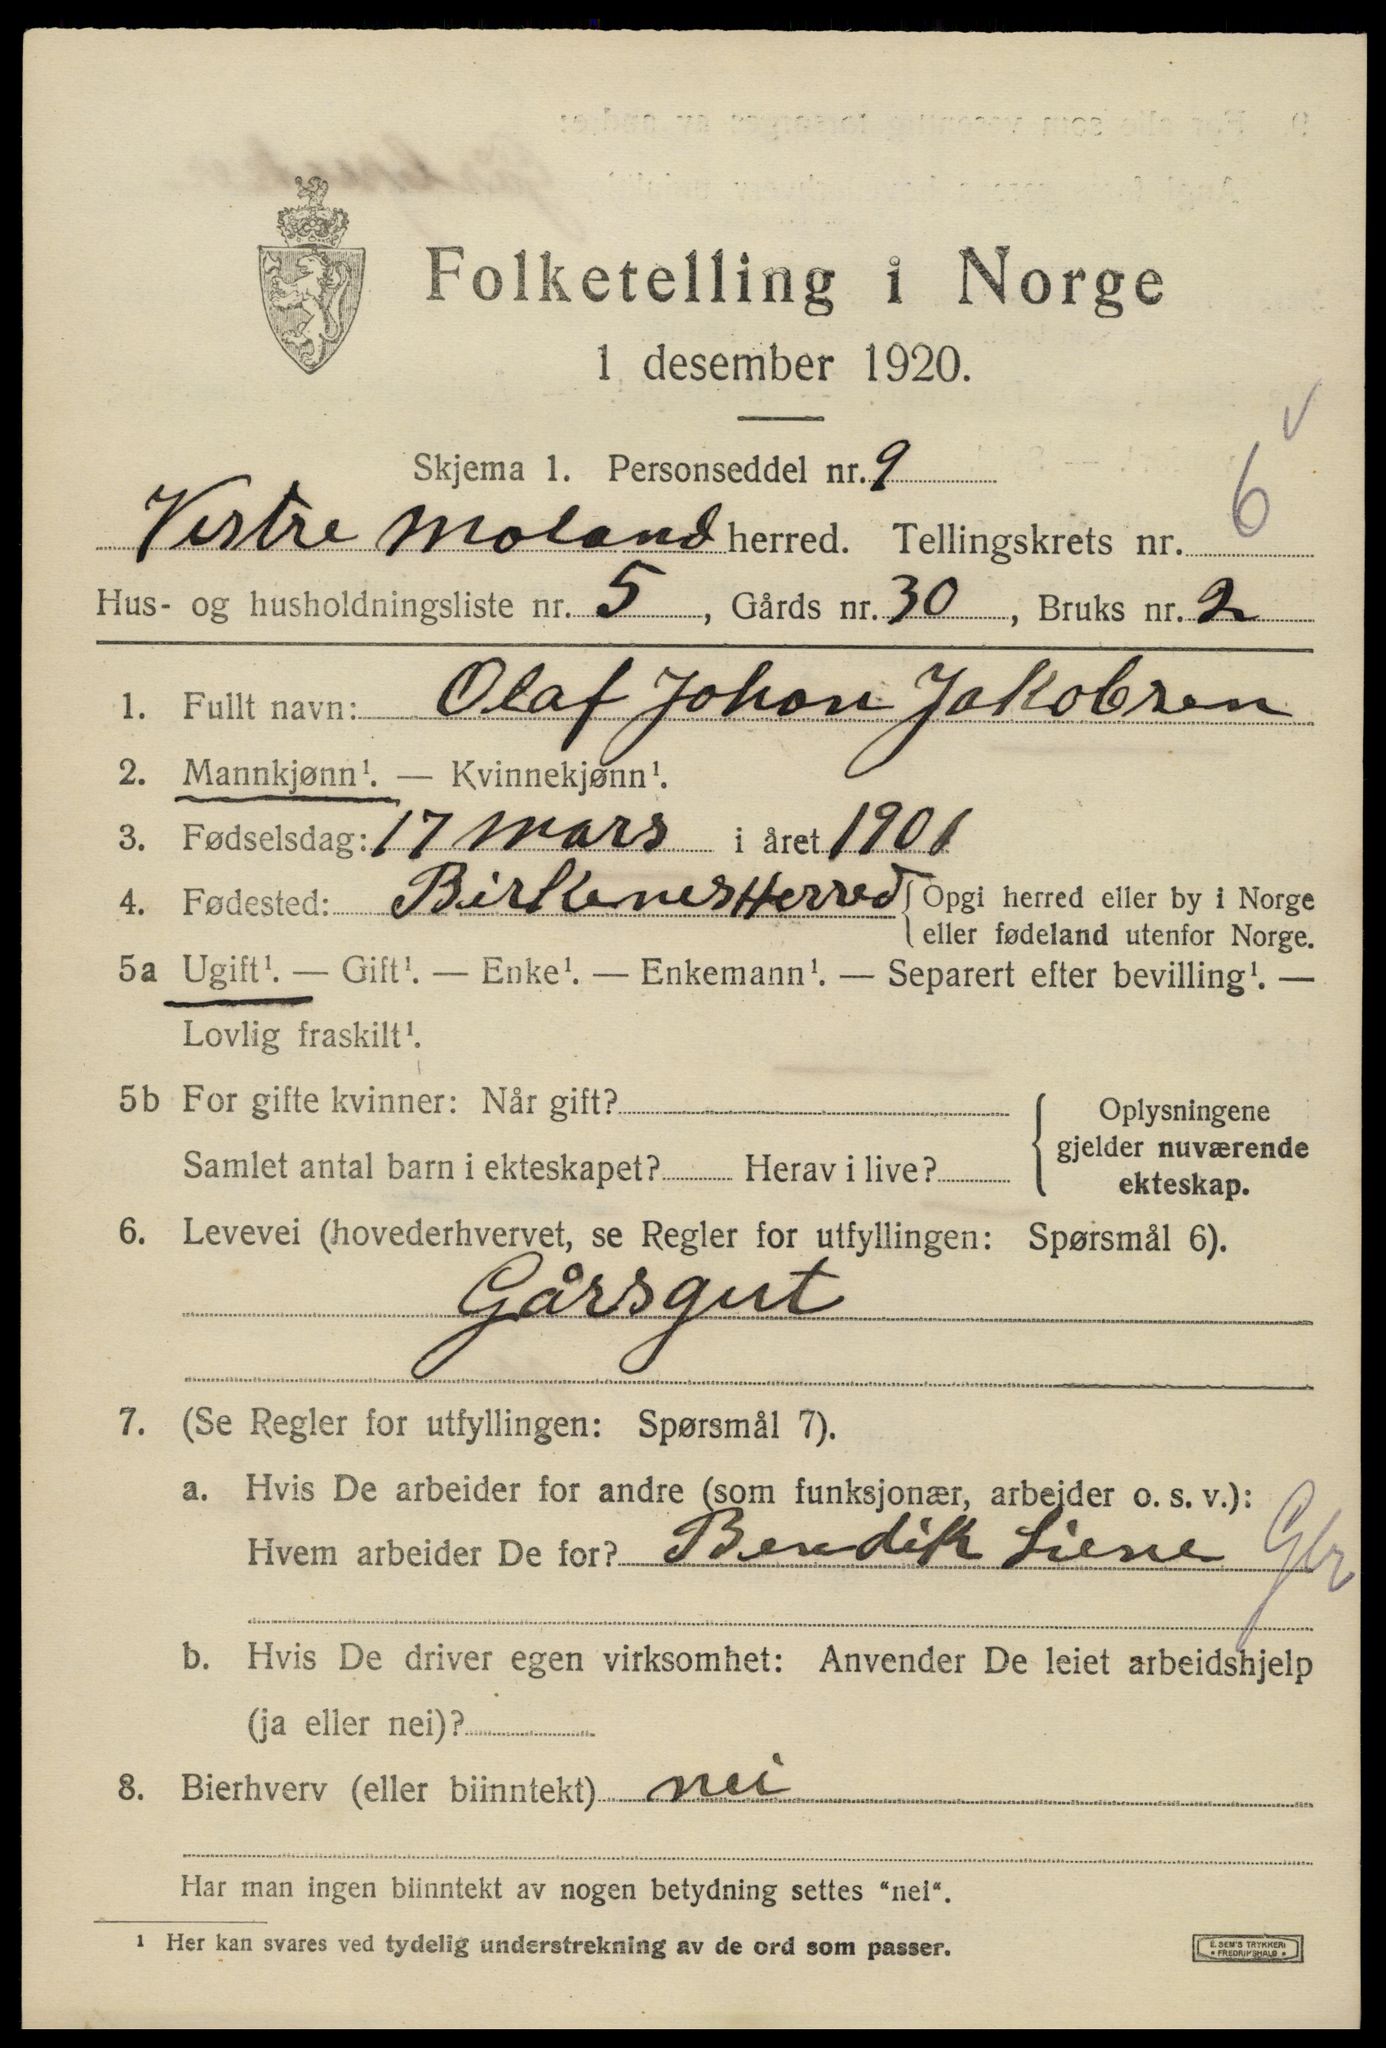 Folketelling i Norge
1 desember 1920.
Skjema 1. Personseddel nr. 9
Vestre Moland herred. Tellingskrets nr. 6
Hus- og husholdningsliste nr. 5, Gårds nr. 30, Bruks nr. 2
1. Fullt navn: Olaf Johan Jakobsen
2. Mannkjønn¹. — Kvinnekjønn¹.
3. Fødselsdag: 17 mars i året 1901
4. Fødested: Birkenes Herred {Opgi herred eller by i Norge
eller fødeland utenfor Norge.
5a Ugift¹. — Gift¹. — Enke¹. — Enkemann¹. — Separert efter bevilling¹. —
Lovlig fraskilt¹.
5b For gifte kvinner: Når gift?
Samlet antal barn i ekteskapet? Herav i live?
{ Oplysningene
gjelder nuværende
ekteskap.
6. Levevei (hovederhvervet, se Regler for utfyllingen: Spørsmål 6).
Gårsgut
7. (Se Regler for utfyllingen: Spørsmål 7).
a. Hvis De arbeider for andre (som funksjonær, arbeider o. s. v.):
Hvem arbeider De for? Bendik Liene Gbr
b. Hvis De driver egen virksomhet: Anvender De leiet arbeidshjelp
(ja eller nei)?
8. Bierhverv (eller biinntekt) nei
Har man ingen biinntekt av nogen betydning settes "nei".
¹ Her kan svares ved tydelig understrekning av de ord som passer.
E. SEM'S TRYKKERI
FREDRIKSHALD